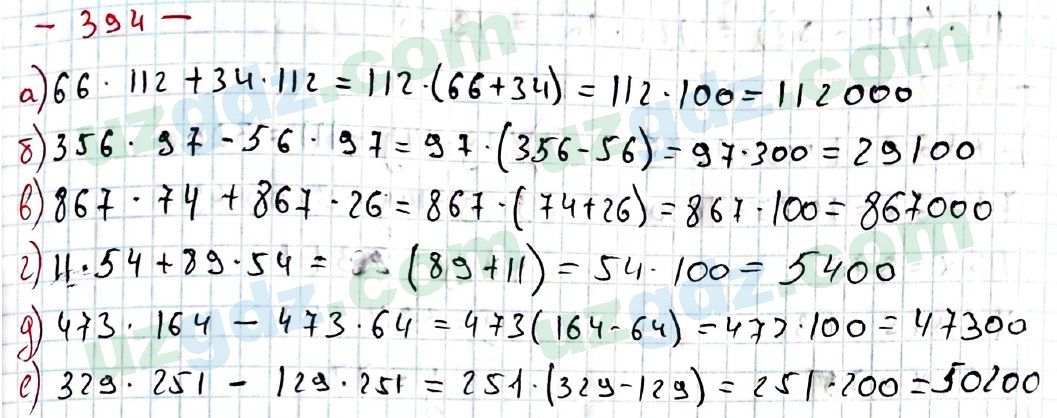 - 394 -
а) 66 · 112 + 34 · 112 = 112 · (66 + 34) = 112 · 100 = 112000
б) 356 · 97 - 56 · 97 = 97 · (356 - 56) = 97 · 300 = 29100
в) 867 · 74 + 867 · 26 = 867 · (74 + 26) = 867 · 100 = 867000
г) 11 · 54 + 89 · 54 = (89 + 11) = 54 · 100 = 5400
д) 473 · 164 - 473 · 64 = 473 (164 - 64) = 473 · 100 = 47300
е) 329 · 251 - 129 · 251 = 251 · (329 - 129) = 251 · 200 = 50200
uzgdz.com
uzgdz.com
uzgdz.com
uzgdz.com